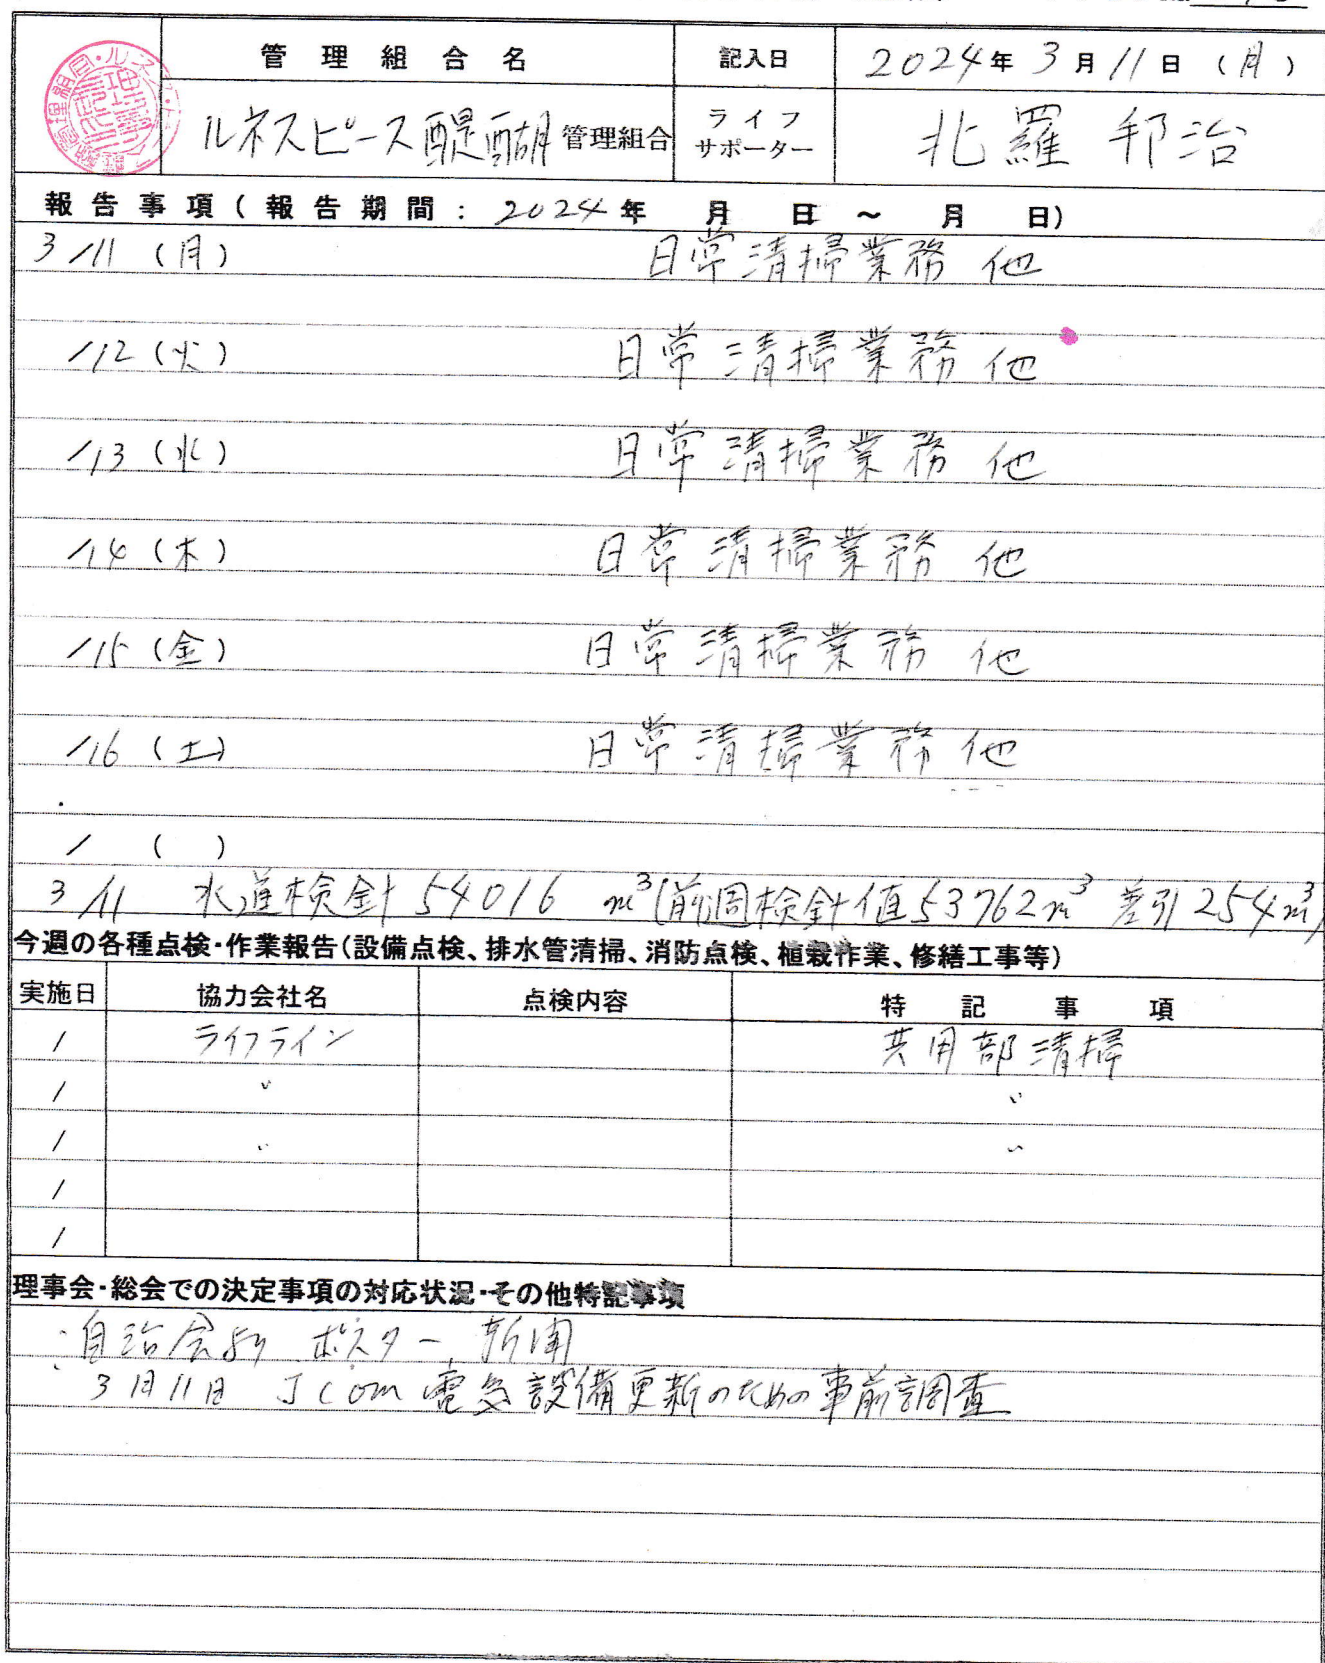 管理組合名 記入日 2024年3月11日(月)
ルネスピース醍醐管理組合 ライフサポーター 北羅 邦治
報告事項(報告期間:2024年 月 日~ 月 日)
3/11(月) 日常清掃業務 他
/12(火) 日常清掃業務 他
/13(水) 日常清掃業務 他
/14(木) 日常清掃業務 他
/15(金) 日常清掃業務 他
/16(土) 日常清掃業務 他
/ ( )
3/11 水道検針 54016 m³(前週検針値53762m³ 差引254m³)
今週の各種点検・作業報告(設備点検、排水管清掃、消防点検、植栽作業、修繕工事等)
実施日 協力会社名 点検内容 特記事項
/ ライフライン 共用部清掃
/ 〃 〃
/ 〃 〃
/
/
理事会・総会での決定事項の対応状況・その他特記事項
・自治会より ポスター 新聞
・3月11日 Jcom 電気設備更新のための事前調査